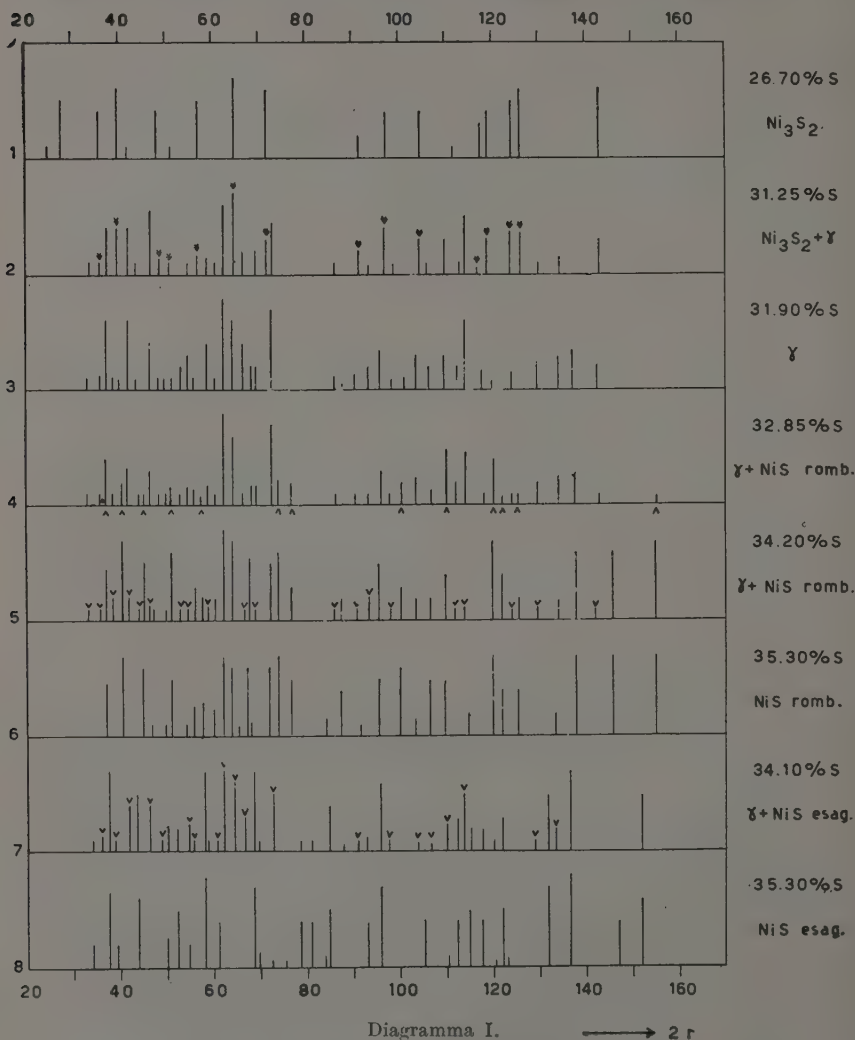 20 40 60 80 100 120 140 160
1
26.70% S
Ni₃S₂.
2
31.25% S
Ni₃S₂ + γ
3
31.90% S
γ
4
32.85% S
γ + NiS romb.
5
34.20% S
γ + NiS romb.
6
35.30% S
NiS romb.
7
34.10% S
γ + NiS esag.
8
35.30% S
NiS esag.
20 40 60 80 100 120 140 160
Diagramma I. → 2 r